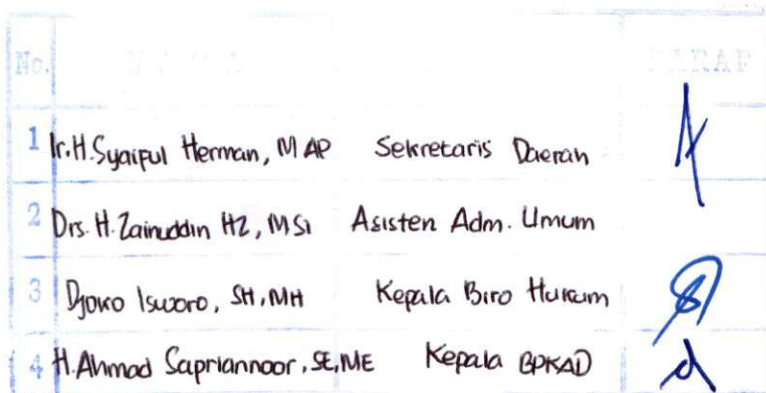 No. NAMA PARAF
1 Ir. H. Syaiful Herman, M AP Sekretaris Daerah
2 Drs. H. Zainuddin HZ, MSi Asisten Adm. Umum
3 Djoko Isworo, SH, MH Kepala Biro Hukum
4 H. Ahmad Sapriannoor, SE, ME Kepala BPKAD